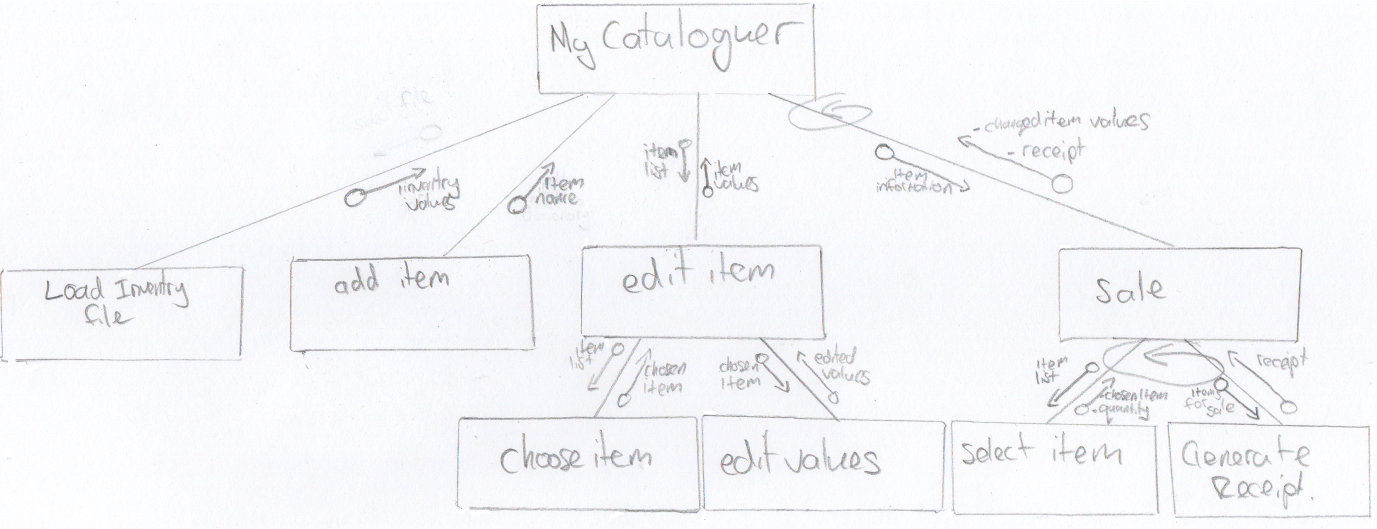 My Cataloguer
file
-changed item values
- receipt
item
list
item
values
inventry
values
item
name
item
information
Load Inventry
file
add item
edit item
Sale
item
list
chosen
item
chosen
item
edited
values
item
list
-chosen item
-quantity
items
for
sale
receipt
choose item
edit values
Select item
Generate
Receipt.